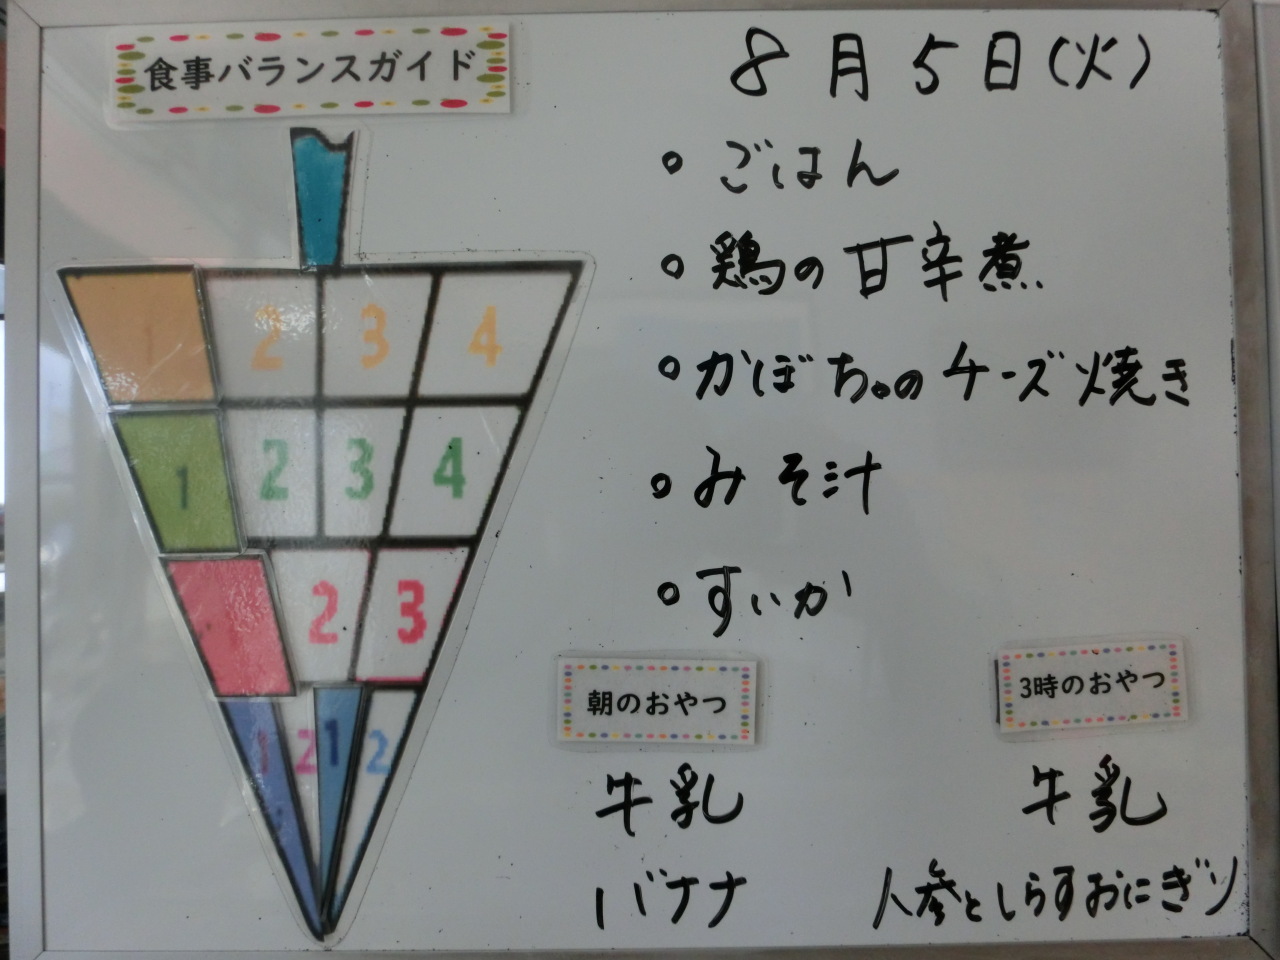 食事バランスガイド
8月5日(火)
。ごはん
。鶏の甘辛煮
。かぼちゃのチーズ焼き
。みそ汁
。すいか
1 2 3 4
1 2 3 4
1 2 3
1 2 1 2
朝のおやつ
牛乳
バナナ
3時のおやつ
牛乳
人参としらすおにぎり